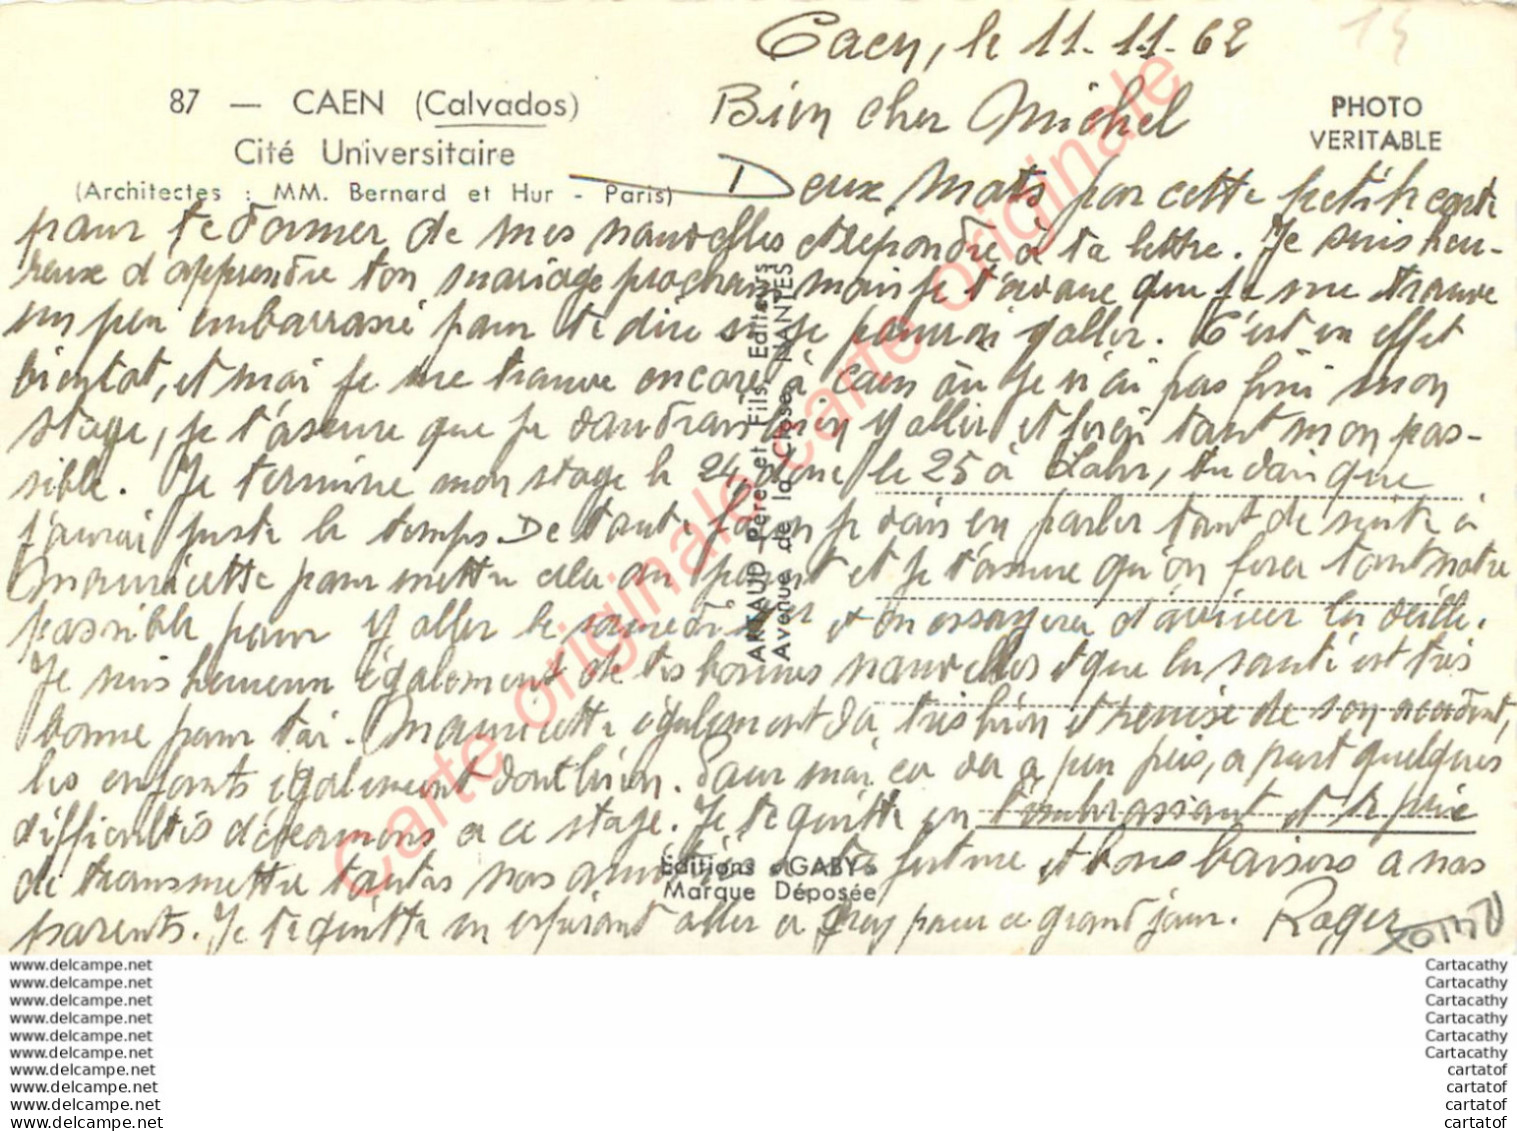 Caen, le 11-11-62
87 — CAEN (Calvados)
Cité Universitaire
(Architectes : MM. Bernard et Hur - Paris)
PHOTO
VERITABLE
Bien cher Michel
Deux mots par cette petite carte
pour te donner de mes nouvelles et répondre à ta lettre. Je suis heu-
reux d'apprendre ton mariage prochain, mais je t'avoue que je me trouve
un peu embarrassé pour te dire si je pourrai y aller. C'est en effet
bientot, et moi je me trouve encore à Caen où je n'ai pas fini mon
stage, je t'assure que je voudrais bien y aller et ferai tout mon pos-
sible. Je termine mon stage le 24 donc le 25 à Lahr, tu vois que
j'aurai juste le temps. De toute façon je vais en parler tout de suite à
Mauricette pour mettre cela au point et je t'assure qu'on fera tout notre
possible pour y aller le samedi 1er et on essayera d'arriver la veille.
Je suis heureux également de tes bonnes nouvelles et que la santé est très
bonne pour toi. Mauricette également va très bien et remise de son accident,
les enfants également vont bien. Pour moi ça va a peu près, a part quelques
difficultés a ce stage. Je te quitte en t'embrassant et te prie
de transmettre toutes nos amitiés à ta future et bons baisers a nos
parents. Je te quitte en espérant aller a Gray pour ce grand jour. Roger
ARTAUD Père et Fils, Editeurs
Avenue de la Close, NANTES
Editions «GABY»
Marque Déposée
Carte originale carte originale
www.delcampe.net
www.delcampe.net
www.delcampe.net
www.delcampe.net
www.delcampe.net
www.delcampe.net
www.delcampe.net
www.delcampe.net
www.delcampe.net
www.delcampe.net
Cartacathy
Cartacathy
Cartacathy
Cartacathy
Cartacathy
Cartacathy
cartatof
cartatof
cartatof
cartatof